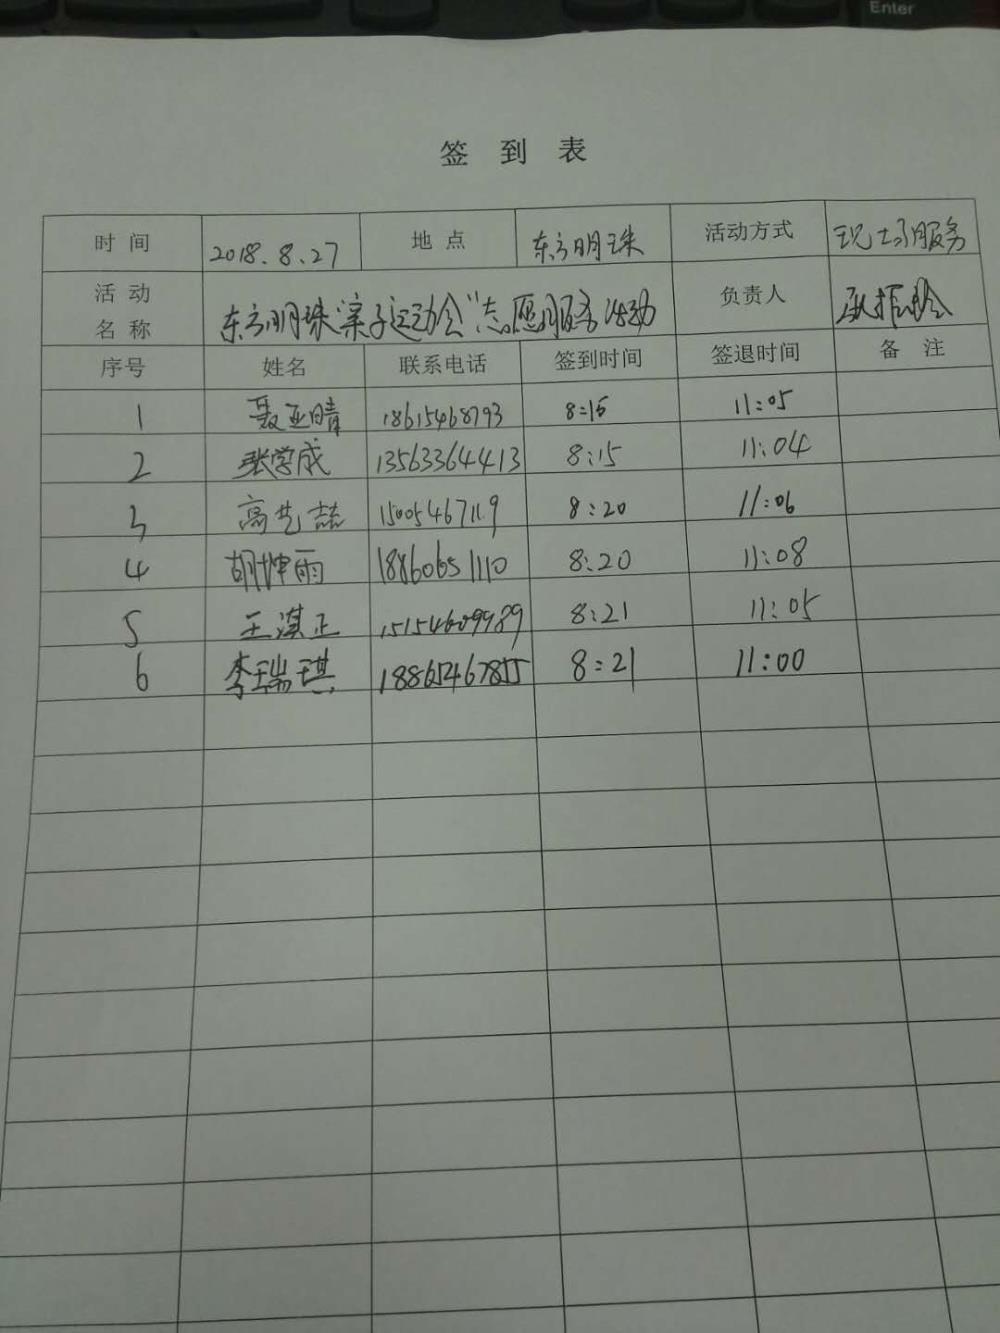 Enter
签 到 表
时 间 2018.8.27 地 点 东方明珠 活动方式 现场服务
活 动 名 称 东方明珠“亲子运动会”志愿服务活动 负责人
序号 姓名 联系电话 签到时间 签退时间 备 注
1 聂亚晴 18615468793 8:16 11:05
2 张学成 13563364413 8:15 11:04
3 高艺喆 15005467119 8:20 11:06
4 胡坤雨 18860651110 8:20 11:08
5 王淇正 15154609989 8:21 11:05
6 李瑞琪 8:21 11:00